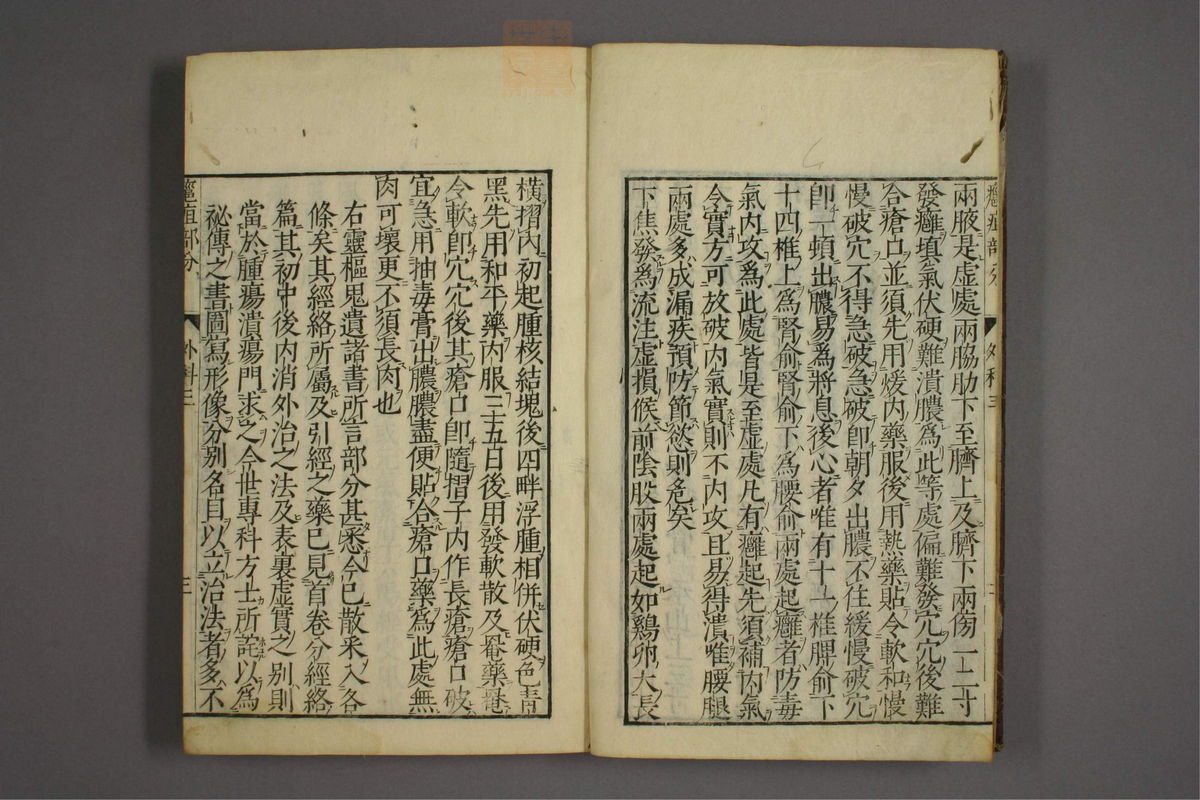 兩腋是虛處兩脇肋下至臍上及臍下兩傍一二寸
發癰填氣伏硬難潰膿為此等處偏難發穴穴後難
合瘡口並須先用煖內藥服後用熱藥貼令軟和慢
慢破穴不得急破急破即朝夕出膿不住緩慢破穴
即一頓出膿易為將息後心者唯有十一椎脾俞下
十四椎上為腎俞腎俞下為腰俞兩處起癰者防毒
氣內攻為此處皆是至虛處凡有癰起先須補內氣
令實方可放破內氣實則不內攻且易得潰唯腰腿
兩處多成漏疾預防節慾則危矣
下焦發為流注虛損候前陰股兩處起如鷄卵大長
橫摺內初起腫核結塊後四畔浮腫相併伏硬色青
黑先用和平藥內服三五日後用發軟散及罨藥罨
令軟即穴穴後其瘡口即隨摺子內作長瘡瘡口破
宜急用抽毒膏出膿膿盡便貼合瘡口藥為此處無
肉可壞更不須長肉也
右靈樞鬼遺諸書所言部分甚悉今已散釆入各
條矣其經絡所屬及引經之藥已見首卷分經絡
篇其初中後內消外治之法及表裏虛實之別則
當於腫瘍潰瘍門求之今世專科方士所詫以為
祕傳之書圖寫形像分別名目以立治法者多不
癰疽部分
外科三
三